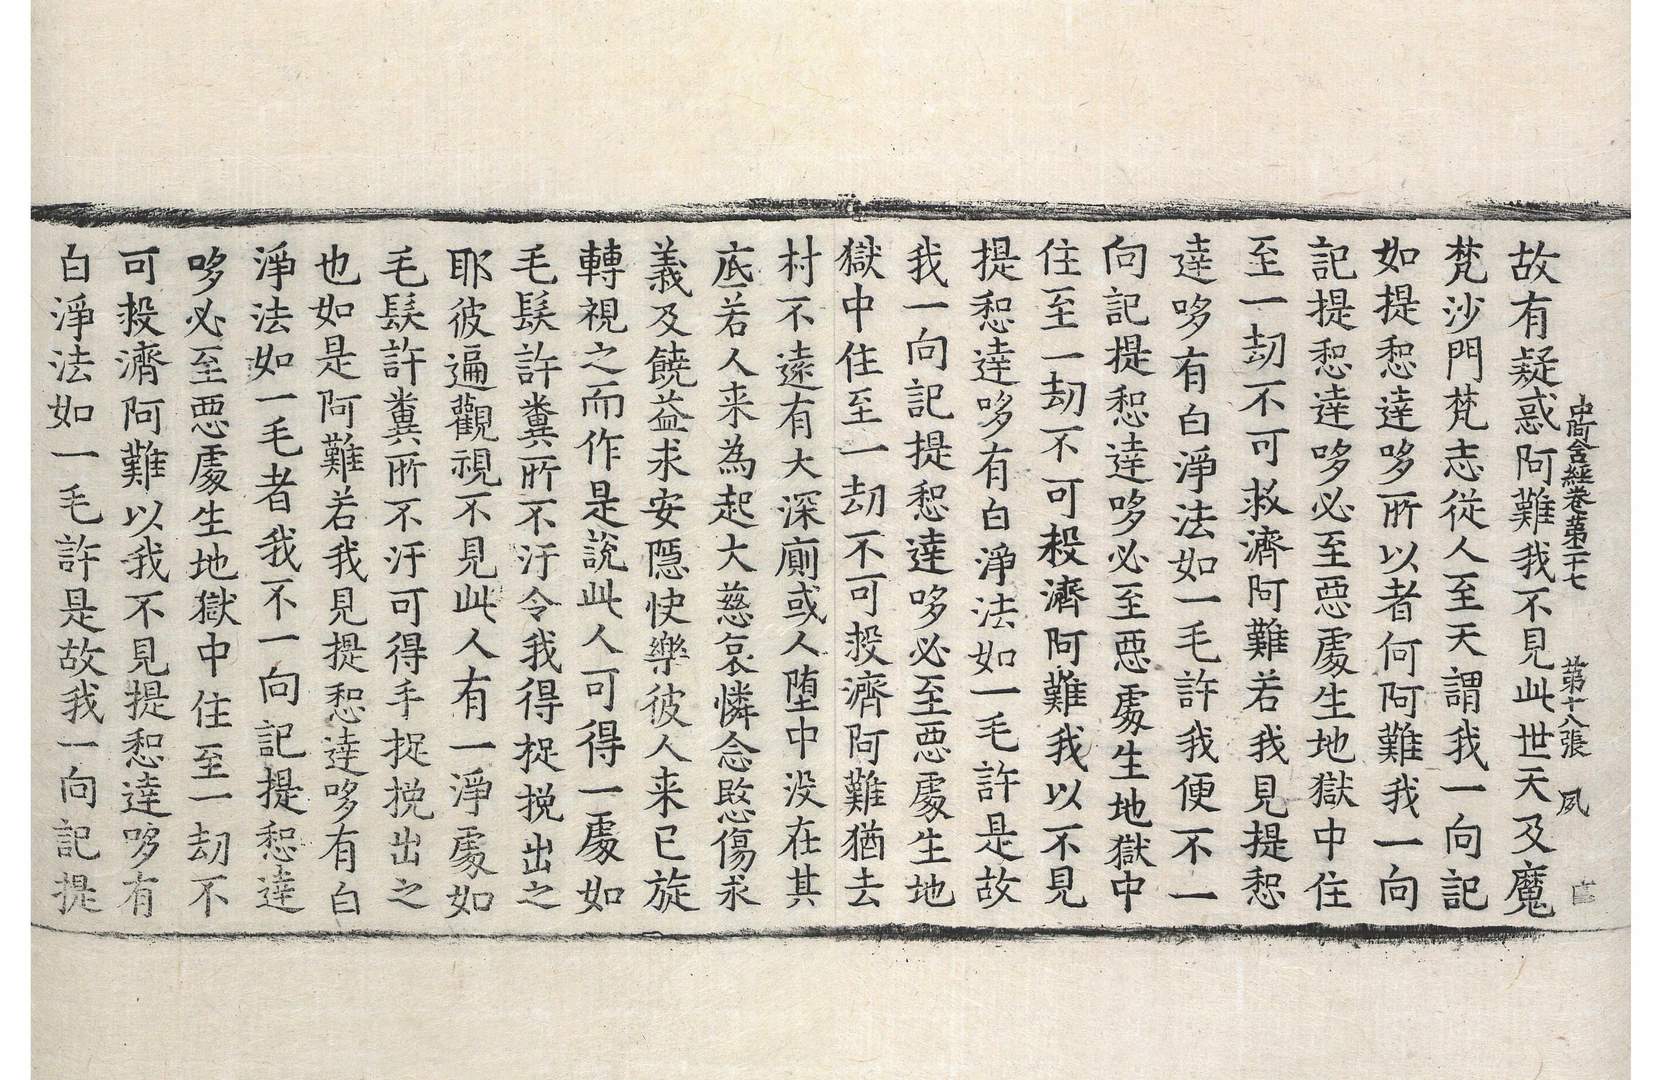 中阿含經卷第二十七 第十八張 夙
故有疑惑阿難我不見此世天及魔
梵沙門梵志從人至天謂我一向記
如提惒達哆所以者何阿難我一向
記提惒達哆必至惡處生地獄中住
至一劫不可救濟阿難若我見提惒
達哆有白淨法如一毛許我便不一
向記提惒達哆必至惡處生地獄中
住至一劫不可救濟阿難我以不見
提惒達哆有白淨法如一毛許是故
我一向記提惒達哆必至惡處生地
獄中住至一劫不可救濟阿難猶去
村不遠有大深廁或人墮中没在其
底若人来為起大慈哀憐念愍傷求
義及饒益求安隱快樂彼人来已旋
轉視之而作是說此人可得一處如
毛髮許糞所不汙令我得捉挽出之
耶彼遍觀視不見此人有一淨處如
毛髮許糞所不汙可得手捉挽出之
也如是阿難若我見提惒達哆有白
淨法如一毛者我不一向記提惒達
哆必至惡處生地獄中住至一劫不
可救濟阿難以我不見提惒達哆有
白淨法如一毛許是故我一向記提